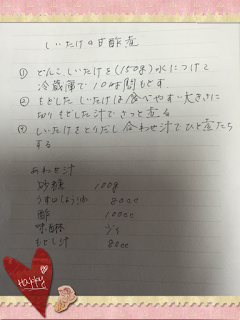 しいたけの甘酢煮
① どんこしいたけを(150g)水につけて
冷蔵庫で10時間もどす
② もどしたしいたけは食べやすい大きさに
切りもどした汁でさっと煮る
③ しいたけをとりだし合わせ汁でひと煮たち
する
あわせ汁
砂糖 100g
うす口しょうゆ 80cc
酢 100cc
味醂
もどし汁 80cc
Happy